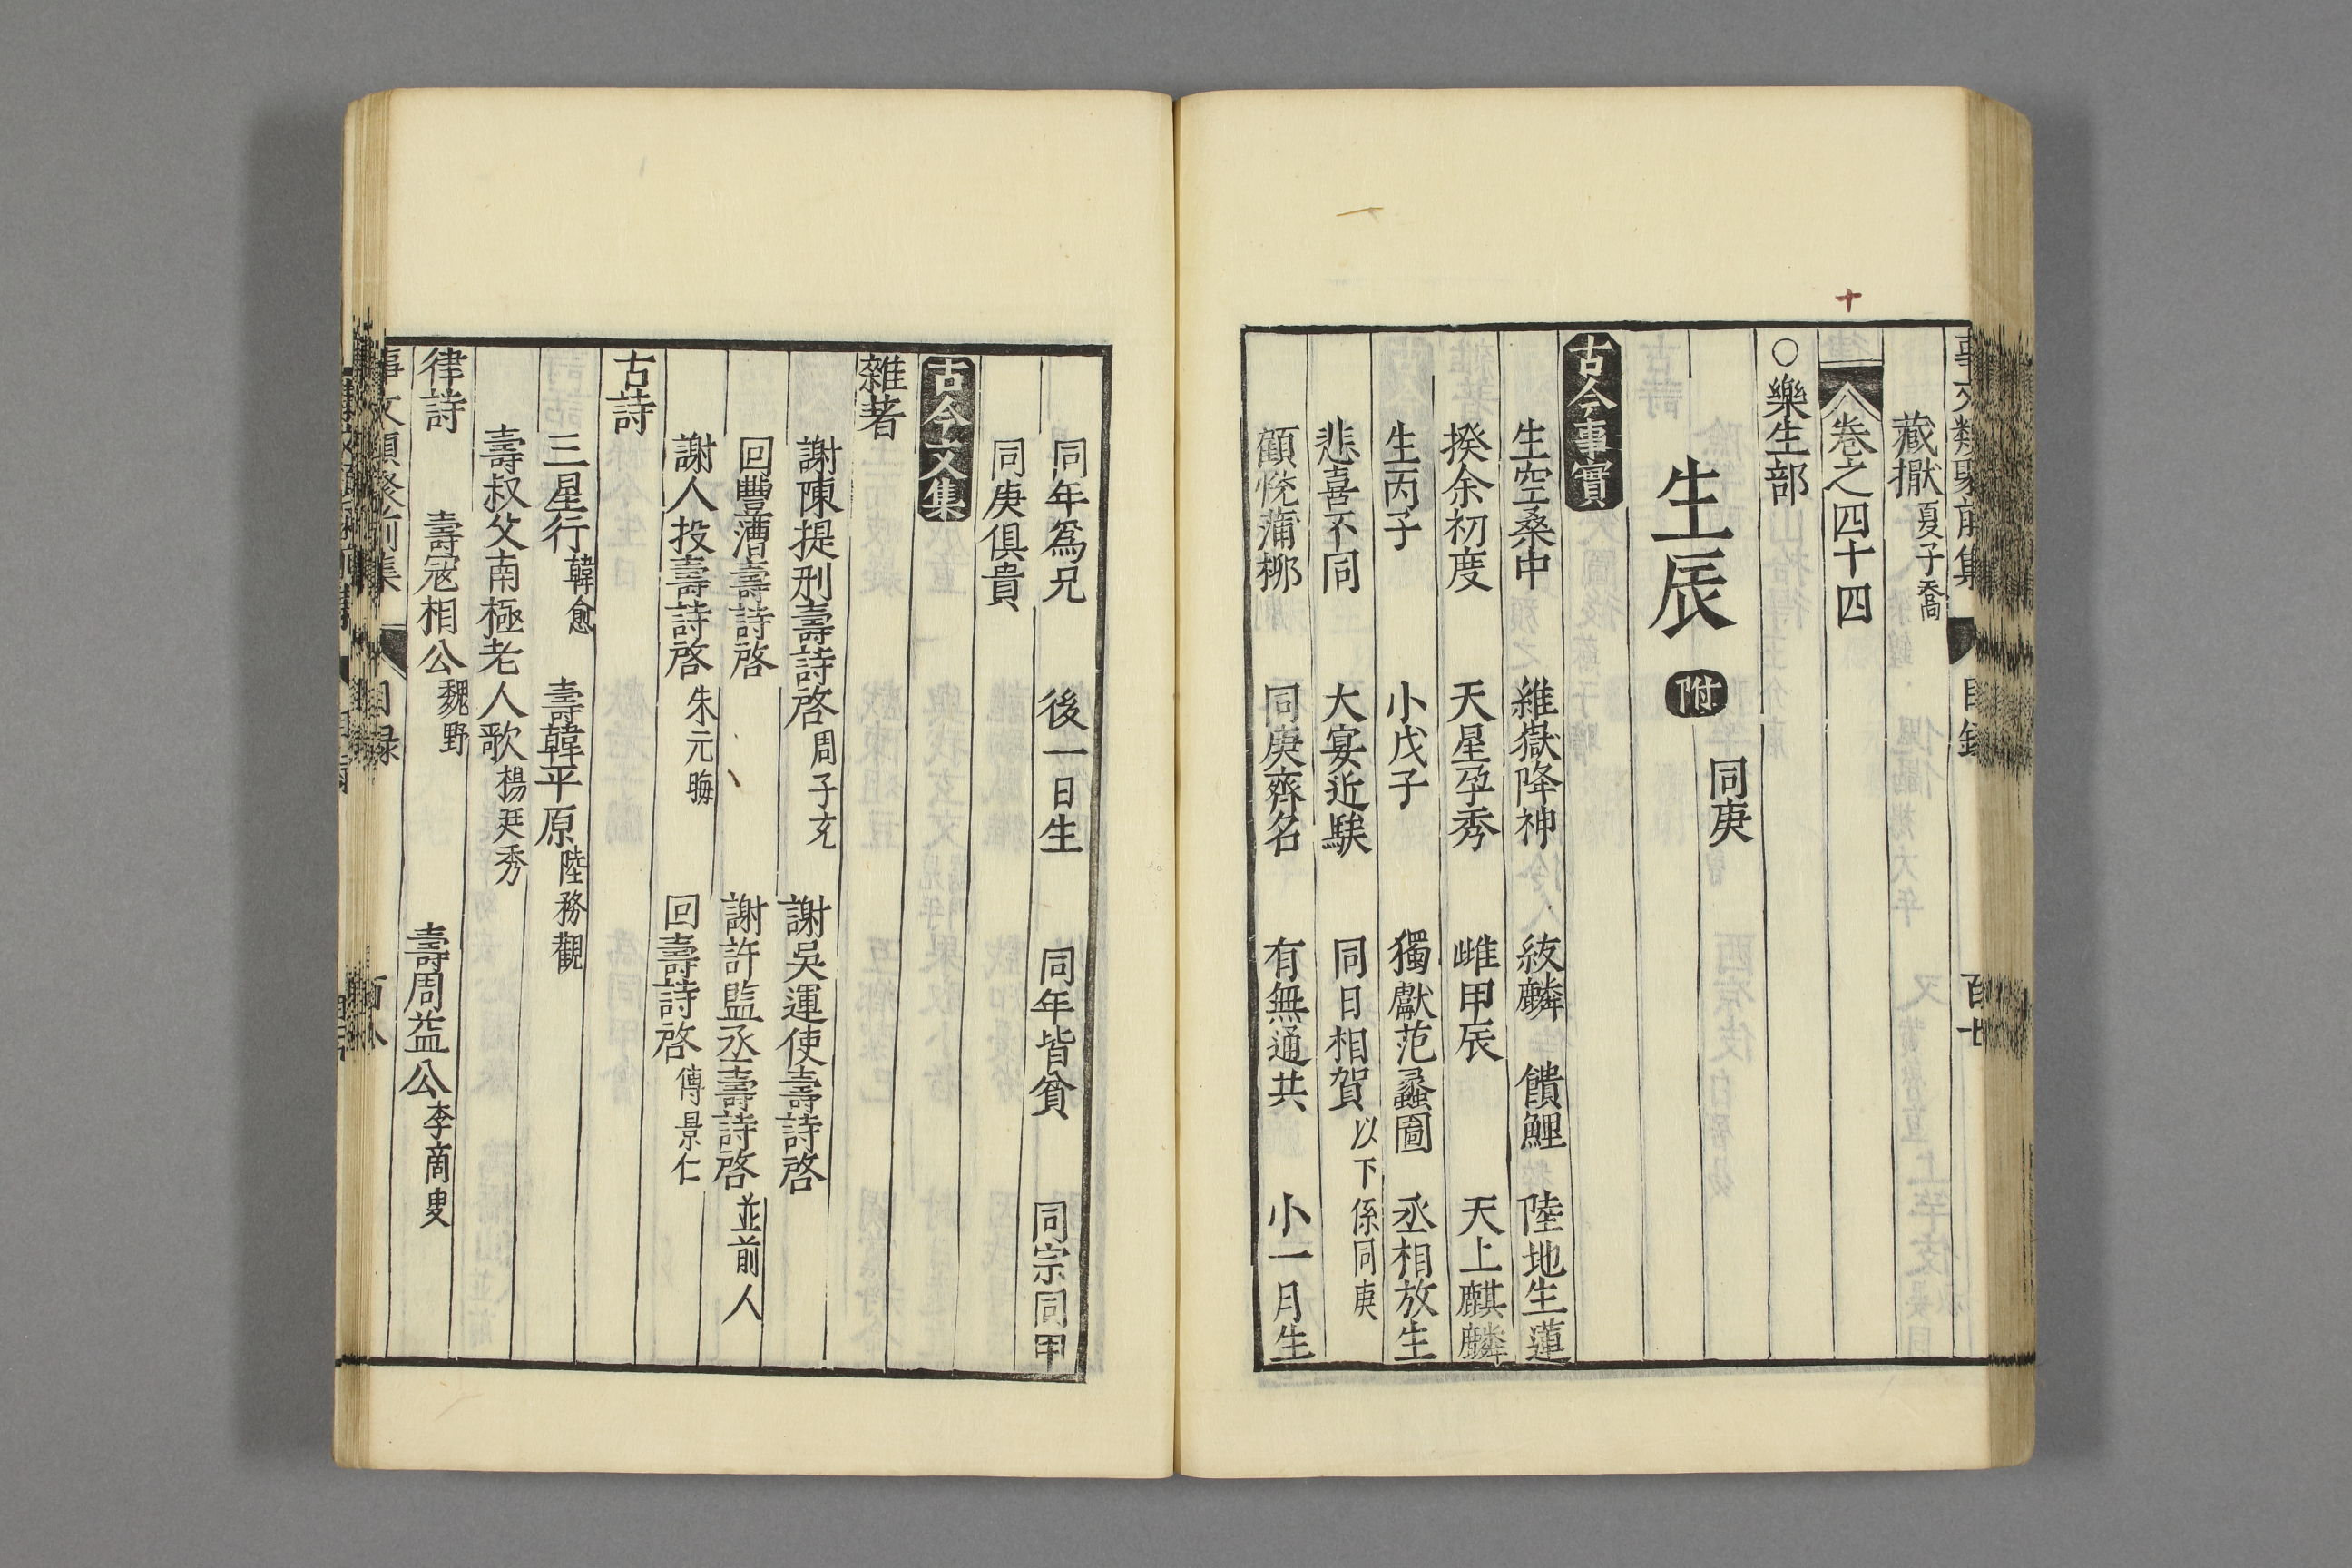 藏擫夏子喬
卷之四十四
〇樂生部
生辰 附 同庚
古今事實
生空桑中 維嶽降神 紱麟 饋鯉 陸地生蓮
揆余初度 天星孕秀 雌甲辰 天上麒麟
生丙子 小戊子 獨獻范蠡圖 丞相放生
悲喜不同 大宴近騃 同日相賀 以下係同庚
顧悅蒲柳 同庚齊名 有無通共 小一月生
同年爲兄 後一日生 同年皆貧 同宗同甲
同庚俱貴
古今文集
雜著
謝陳提刑壽詩啓 周子充 謝吳運使壽詩啓
回豐漕壽詩啓 謝許監丞壽詩啓 並前人
謝人投壽詩啓 朱元晦 回壽詩啓 傅景仁
古詩
三星行 韓愈 壽韓平原 陸務觀
壽叔父南極老人歌 楊廷秀
律詩 壽寇相公 魏野 壽周益公 李商叟